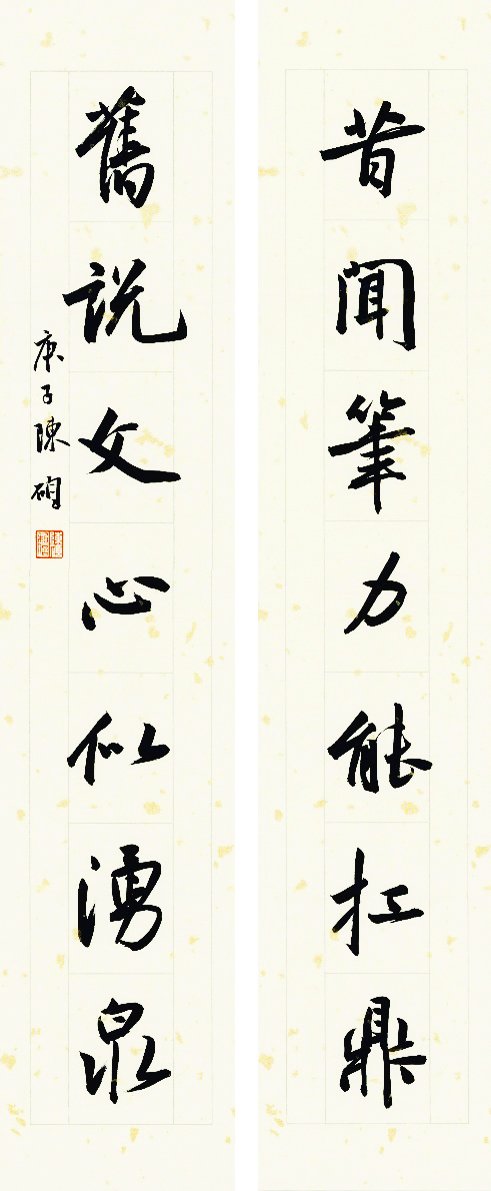 昔闻筆力能扛鼎
舊説文心似湧泉
庚子陳碩